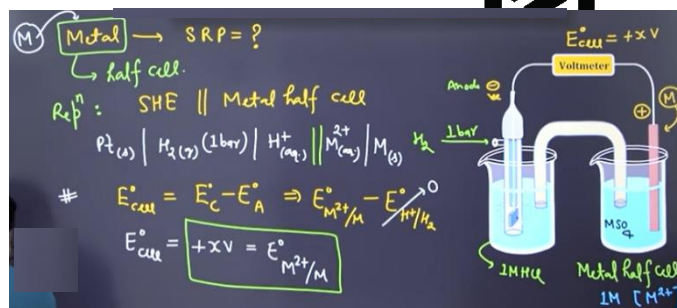 M Metal → SRP = ?
↳ half cell.
Repⁿ : SHE || Metal half cell
Pt(s) | H₂(g) (1bar) | H⁺(aq.) || M²⁺(aq) | M(s)
# E°cell = E°C – E°A ⇒ E°M²⁺/M – E°H⁺/H₂ 0
E°cell = +xv = E°M²⁺/M
E°cell = +xv
Voltmeter
Anode ⊖
⊕ M
H₂ 1bar →
MSO₄
1MHCl
Metal half cell
1M [M²⁺